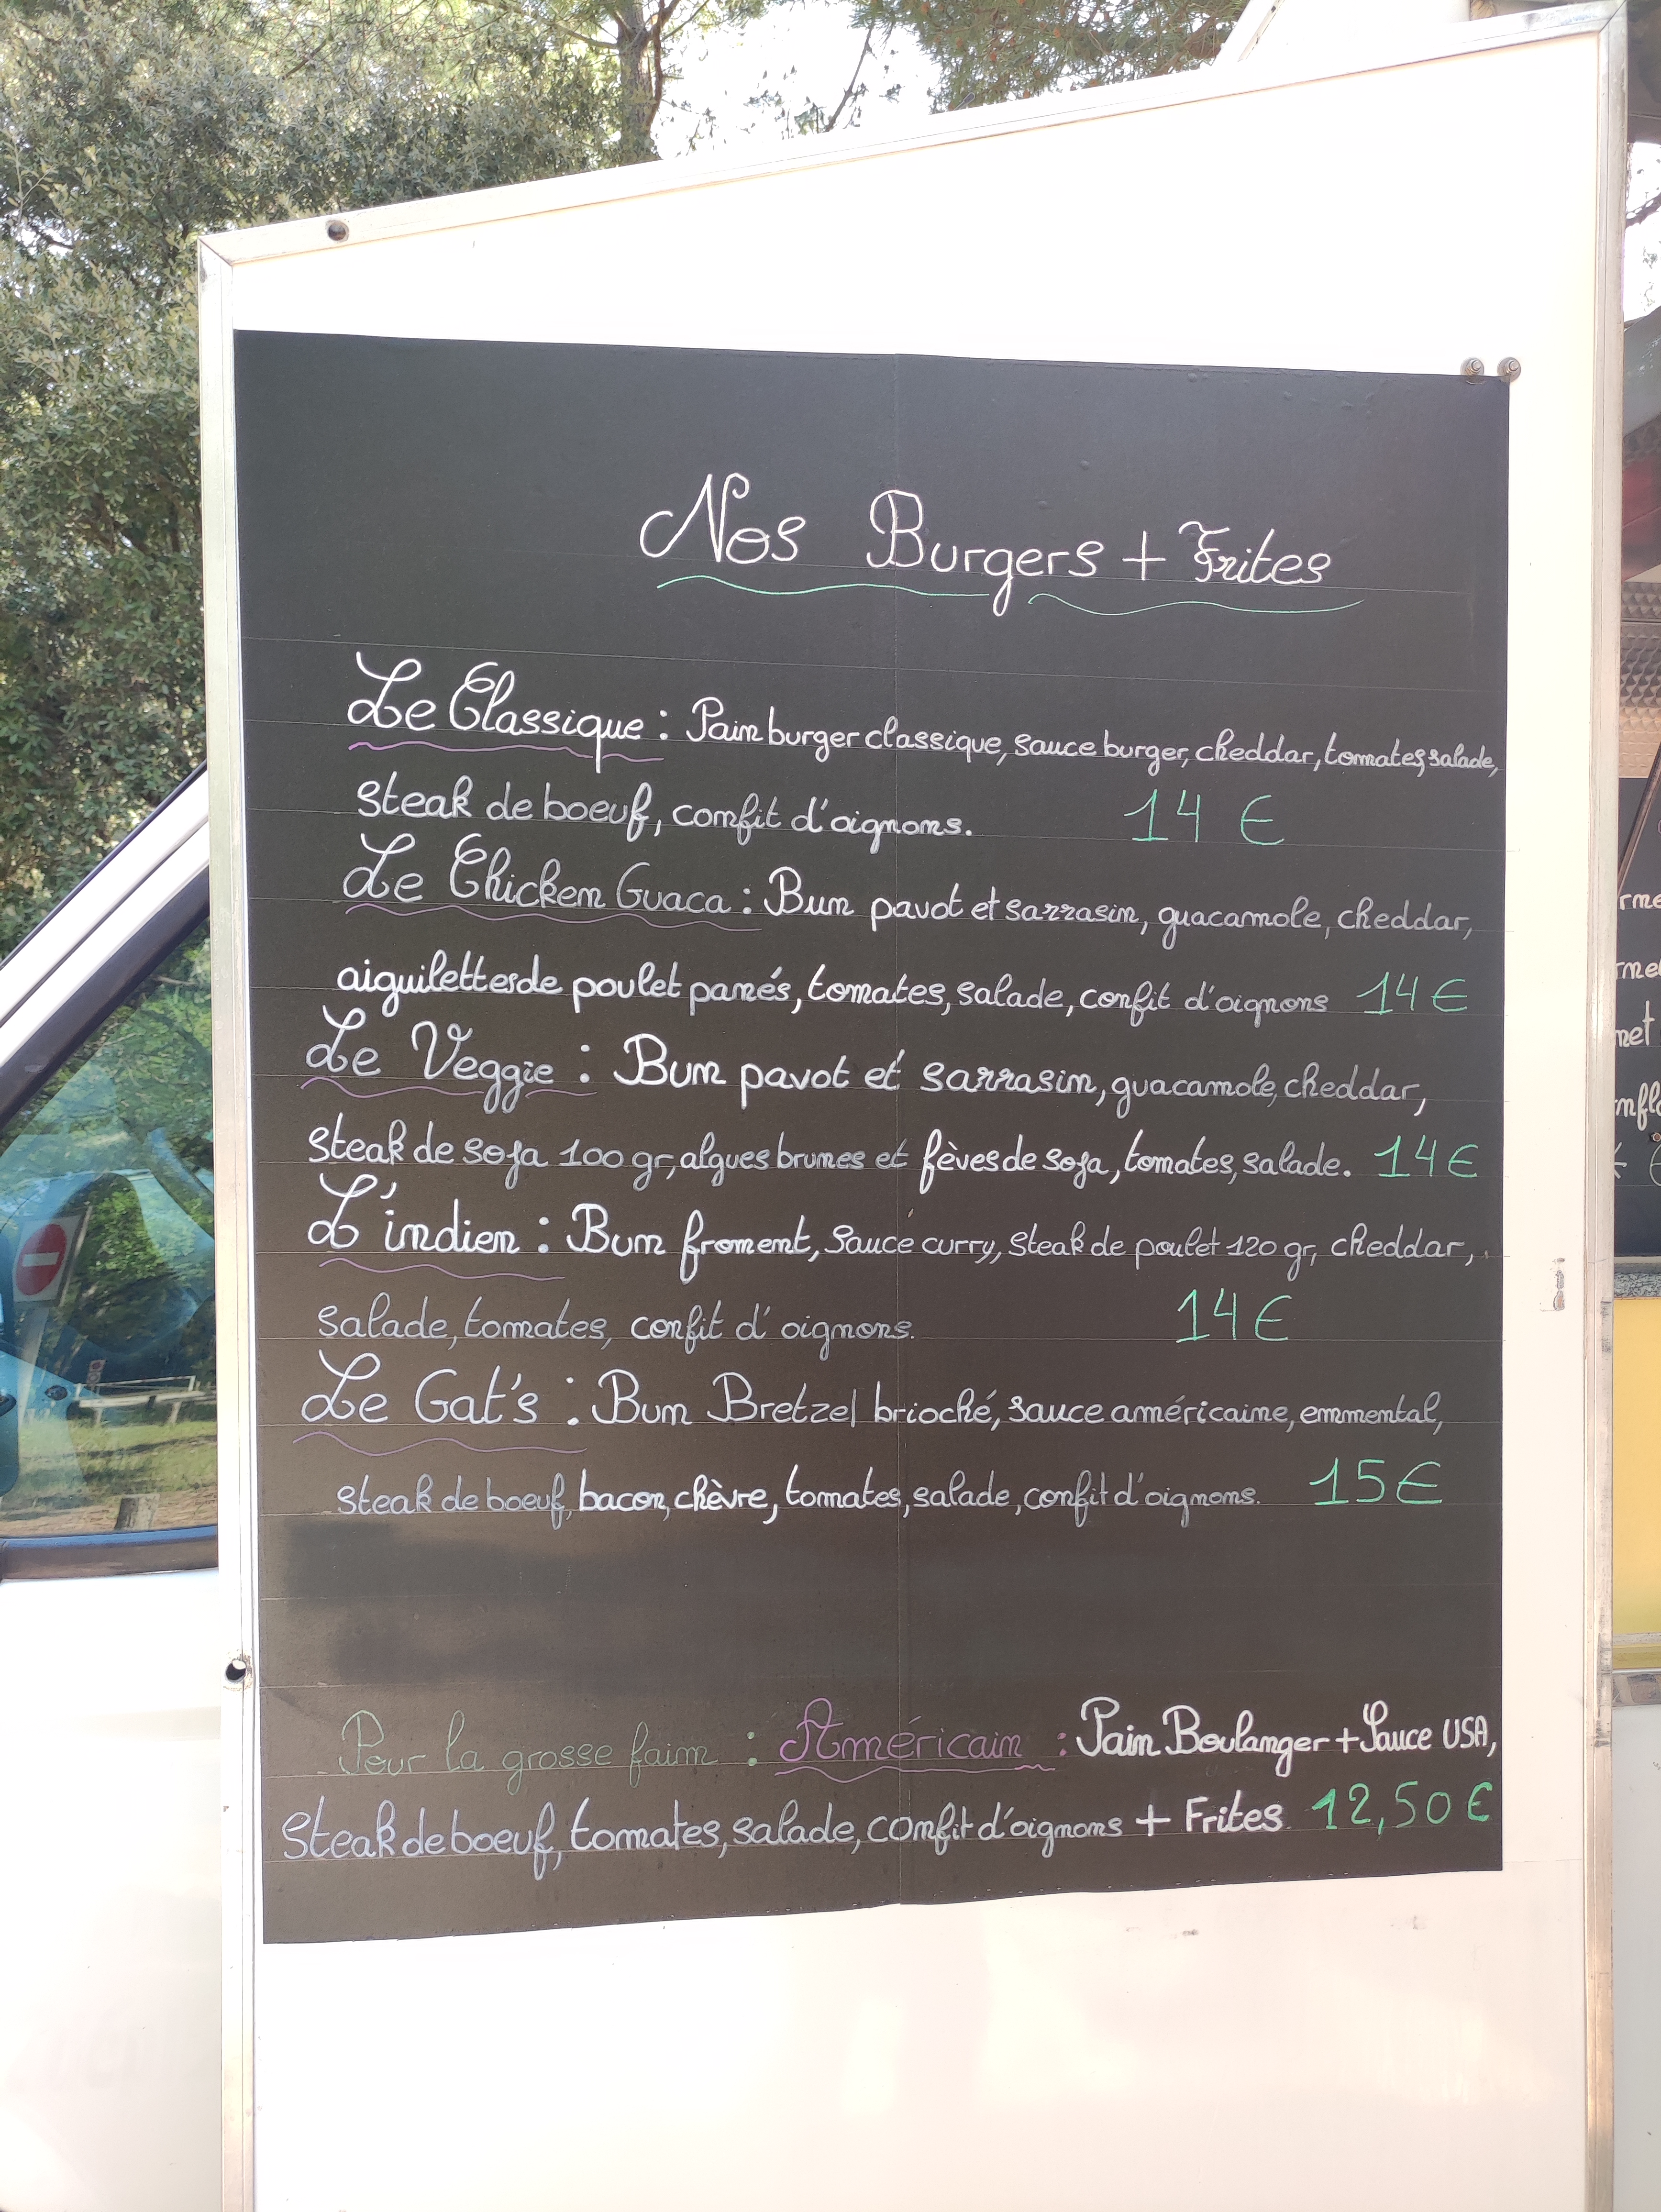 Nos Burgers + Frites
Le Classique : Pain burger classique, sauce burger, cheddar, tomates, salade,
steak de boeuf, confit d'oignons. 14 €
Le Chicken Guaca : Bun pavot et sarrasin, guacamole, cheddar,
aiguilettes de poulet panés, tomates, salade, confit d'oignons 14 €
Le Veggie : Bun pavot et sarrasin, guacamole, cheddar,
steak de soja 100 gr, algues brunes et fèves de soja, tomates, salade. 14 €
L'indien : Bun froment, sauce curry, steak de poulet 120 gr, cheddar,
salade, tomates, confit d'oignons. 14 €
Le Gat's : Bun Bretzel brioché, sauce américaine, emmental,
steak de boeuf, bacon, chèvre, tomates, salade, confit d'oignons. 15 €
Pour la grosse faim : Américain : Pain Boulanger + Sauce USA,
Steak de boeuf, tomates, salade, confit d'oignons + Frites. 12,50 €